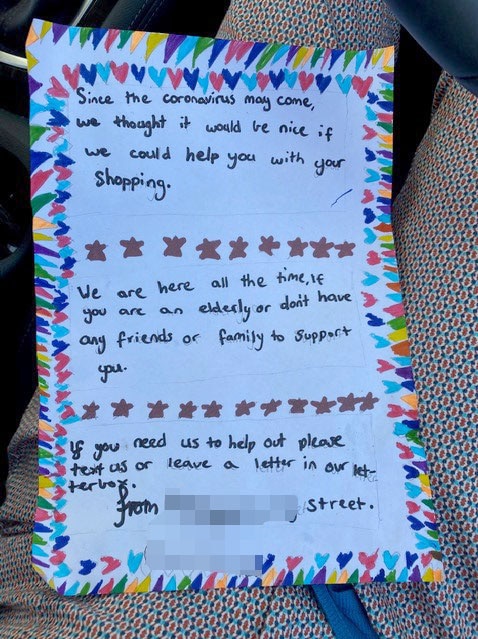 Since the coronavirus may come,
we thought it would be nice if
we could help you with your
Shopping.
We are here all the time, If
you are an elderly or don't have
any friends or family to support
you.
If you need us to help out please
text us or leave a letter in our let-
terbox.
from street.